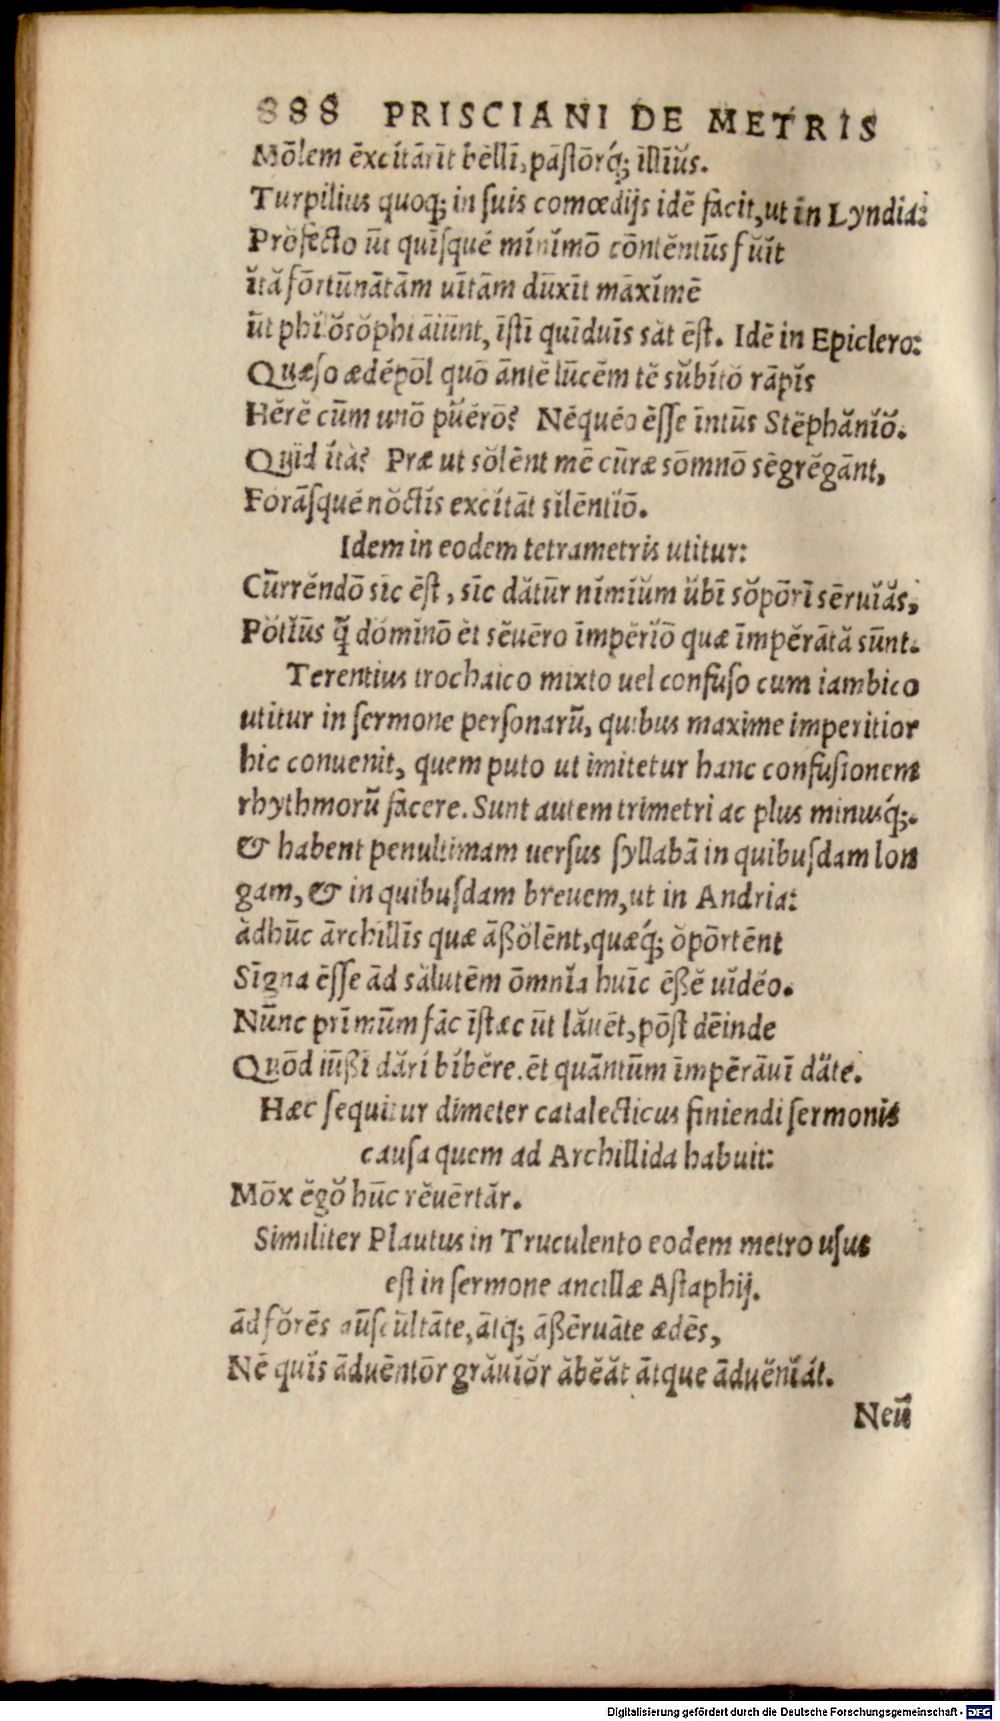 888 PRISCIANI DE METRIS
Mōlem ēxcĭtārĭt bēllī, pāſtōrq́; īllĭŭs.
Turpilius quoq; in ſuis comœdijs idē facit, ut in Lyndia:
Prŏfēcto ūt quīſqué mĭnĭmō cōntēntŭs fŭĭt
ĭtă fōrtūnātām uītām dūxĭt māxĭmē
ūt phĭlŏsŏphi āiūnt, īſtī quīduīs săt ēſt. Idē in Epiclero:
Quæſo ædĕpōl quō āntē lūcēm tē sŭbĭtŏ rāpĭs
Hērē cūm unō pŭĕrō? Nēquéo ēſſe īntūs Stĕphănĭŏ.
Quĭd ĭtà? Præ ut sŏlēnt mē cūræ sōmnō sēgrĕgānt,
Forāſqué nŏctĭs excĭtāt sĭlēntĭō.
Idem in eodem tetrametris utitur:
Cūrrēndō sīc ēſt, sīc dătūr nĭmĭŭm ŭbī sŏpōrī sēruĭăs,
Pŏtĭūs q̄̆ dŏmĭnō ĕt sĕuērō īmpĕrĭō quæ īmpĕrātă sūnt.
Terentius trochaico mixto uel confuſo cum iambico
utitur in ſermone perſonarū, quibus maxime imperitior
hic conuenit, quem puto ut imitetur hanc confuſionem
rhythmorū facere. Sunt autem trimetri ac plus minusq́;.
& habent penultimam uerſus ſyllabā in quibuſdam lon
gam, & in quibuſdam breuem, ut in Andria:
àdhūc ārchillīs quæ āßŏlēnt, quæq́; ŏpōrtēnt
Sīgna ēſſe ād sălutēm ōmnĭa huīc ēßĕ uĭdĕo.
Nūnc prīmūm fāc īſtæc ūt lăuēt, pōſt dēinde
Quōd iūßi dări bĭbĕre. ēt quāntūm īmpĕrāuī dăte.
Hæc ſequitur dimeter catalecticus finiendi ſermonis
cauſa quem ad Archillida habuit:
Mōx ĕgŏ hūc rĕuērtăr.
Similiter Plautus in Truculento eodem metro uſus
eſt in ſermone ancillæ Aſtaphij.
ād fŏrēs aūſcūltāte, ātq; āßēruāte ædēs,
Nē quĭs ādvēntōr grăuĭŏr ăbĕăt ātque ādvĕnĭát.
Neū
Digitalisierung gefördert durch die Deutsche Forschungsgemeinschaft - DFG